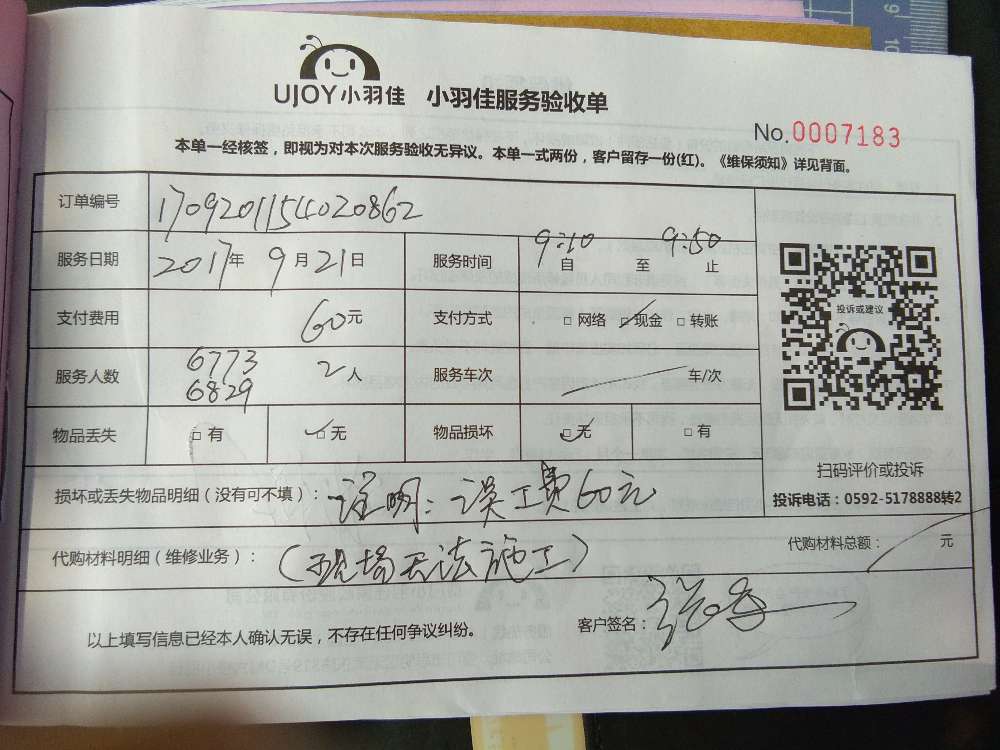 UJOY小羽佳 小羽佳服务验收单
No.0007183
本单一经核签，即视为对本次服务验收无异议。本单一式两份，客户留存一份(红)。《维保须知》详见背面。
订单编号 170920115402086​2
服务日期 2017年 9月21日 服务时间 9:10 自 至 9:50 止
支付费用 60元 支付方式 □ 网络 □ 现金 □ 转账
服务人数 6773 6829 2人 服务车次 车/次
物品丢失 □ 有 □ 无 物品损坏 □ 无 □ 有
投诉或建议
扫码评价或投诉
投诉电话：0592-5178888转2
损坏或丢失物品明细（没有可不填）：证明：误工费60元
代购材料明细（维修业务）：（现场无法施工） 代购材料总额： 元
以上填写信息已经本人确认无误，不存在任何争议纠纷。 客户签名：